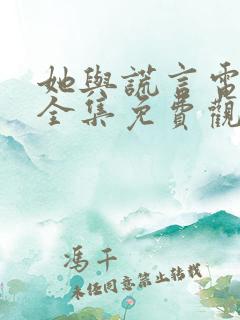 她與謊言電
全集免費觀
馮干
未經同意禁止轉載